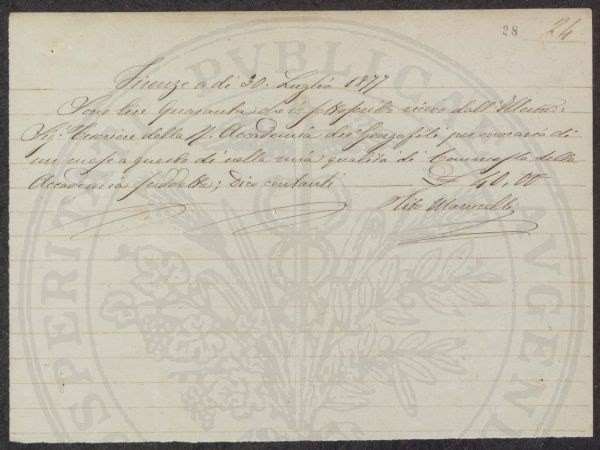 28 24
Firenze a dì 30. Luglio 1877
Sono lire Quaranta che io sottoscritto ricevo dall' Illmo:
Sig: Tesoriere della R. Accademia dei Georgofili per onorario di
un mese a questo dì nella mia qualità di Commesso della
Accademia suddetta; Dico contanti £ 40,00
PUBLICAE
AUGENDAE
PROSPERITATI